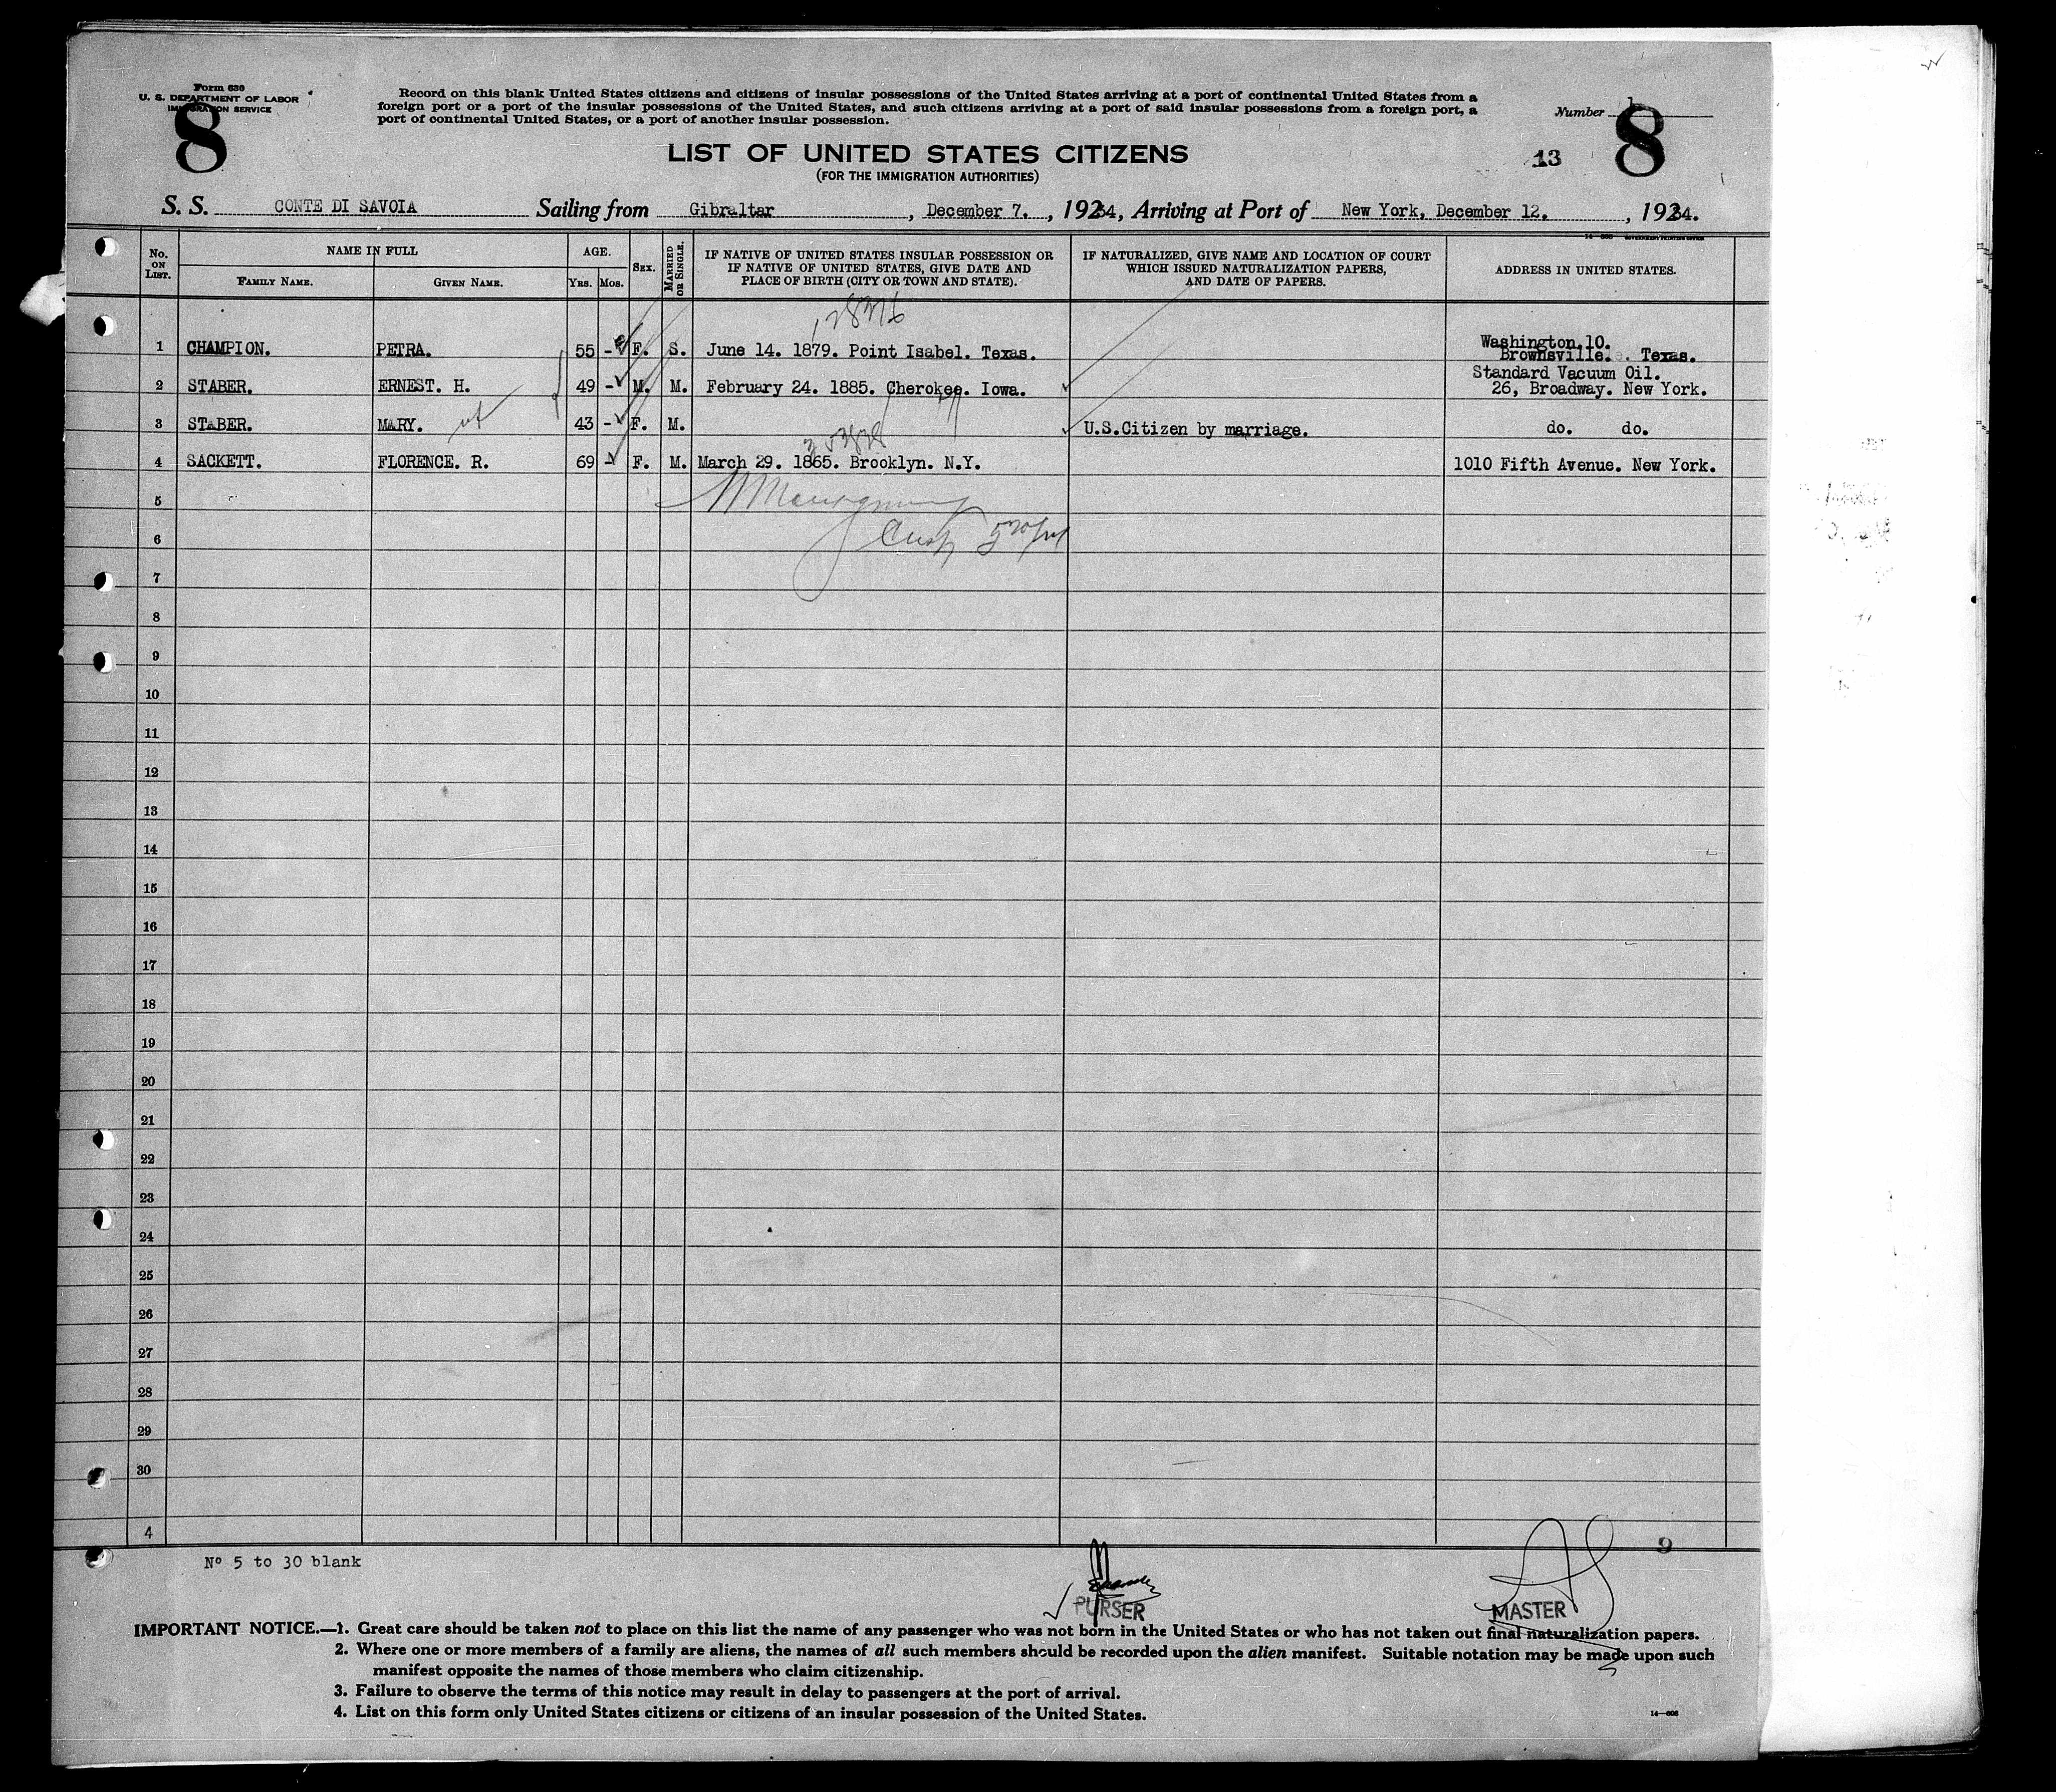 Form 630
U. S. DEPARTMENT OF LABOR
IMMIGRATION SERVICE
8
Record on this blank United States citizens and citizens of insular possessions of the United States arriving at a port of continental United States from a
foreign port or a port of the insular possessions of the United States, and such citizens arriving at a port of said insular possessions from a foreign port, a
port of continental United States, or a port of another insular possession.
Number 1
8
LIST OF UNITED STATES CITIZENS
13
(FOR THE IMMIGRATION AUTHORITIES)
S. S. CONTE DI SAVOIA Sailing from Gibraltar, December 7., 1934, Arriving at Port of New York, December 12., 1934.
No. ON LIST.
NAME IN FULL
FAMILY NAME.
GIVEN NAME.
AGE.
YRS.
MOS.
SEX.
MARRIED OR SINGLE.
IF NATIVE OF UNITED STATES INSULAR POSSESSION OR
IF NATIVE OF UNITED STATES, GIVE DATE AND
PLACE OF BIRTH (CITY OR TOWN AND STATE).
IF NATURALIZED, GIVE NAME AND LOCATION OF COURT
WHICH ISSUED NATURALIZATION PAPERS,
AND DATE OF PAPERS.
ADDRESS IN UNITED STATES.
128376
1 CHAMPION. PETRA. 55 - F. S. June 14. 1879. Point Isabel. Texas. Washington 10.
Brownsville. Texas.
2 STABER. ERNEST. H. 49 - M. M. February 24. 1885. Cherokee. Iowa. Standard Vacuum Oil.
26, Broadway. New York.
3 STABER. MARY. 43 - F. M. U.S.Citizen by marriage. do. do.
4 SACKETT. FLORENCE. R. 69 - F. M. March 29. 1865. Brooklyn. N.Y. 1010 Fifth Avenue. New York.
5
6
7
8
9
10
11
12
13
14
15
16
17
18
19
20
21
22
23
24
25
26
27
28
29
30
4
9
Nº 5 to 30 blank
PURSER
MASTER
IMPORTANT NOTICE.—1. Great care should be taken not to place on this list the name of any passenger who was not born in the United States or who has not taken out final naturalization papers.
2. Where one or more members of a family are aliens, the names of all such members should be recorded upon the alien manifest. Suitable notation may be made upon such
manifest opposite the names of those members who claim citizenship.
3. Failure to observe the terms of this notice may result in delay to passengers at the port of arrival.
4. List on this form only United States citizens or citizens of an insular possession of the United States.